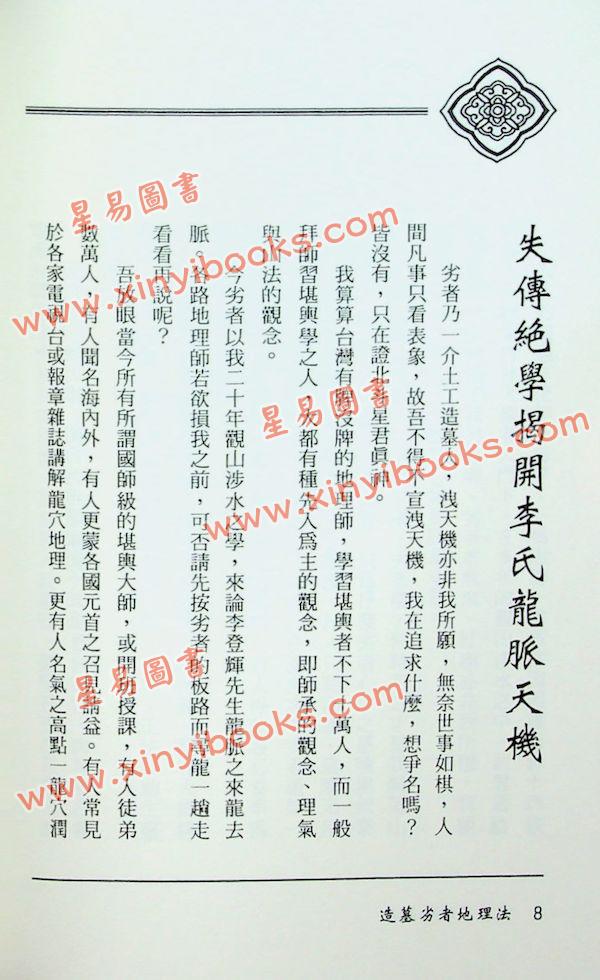 失傳絕學揭開李氏龍脈天機
劣者乃一介土工造墓人，洩天機亦非我所願，無奈世事如棋，人
間凡事只看表象，故吾不得不宣洩天機，我在追求什麼，想爭名嗎？
皆沒有，只在證北斗星君眞神。
我算算台灣有牌沒牌的地理師，學習堪輿者不下十萬人，而一般
拜師習堪輿學之人，大都有種先入為主的觀念，即師承的觀念、理氣
與 法的觀念。
今劣者以我二十年觀山涉水之學，來論李登輝先生龍脈之來龍去
脈。各路地理師若欲損我之前，可否請先按劣者的板路而尋龍一趟走
看看再說呢？
吾放眼當今所有所謂國師級的堪輿大師，或開班授課，有人徒弟
數萬人，有人聞名海內外，有人更蒙各國元首之召見請益。有人常見
於各家電視台或報章雜誌講解龍穴地理。更有人名氣之高點一龍穴潤
造墓劣者地理法 8
星易圖書
www.xinyibooks.com
星易圖書
www.xinyibooks.com
星易圖書
www.xinyibooks.com